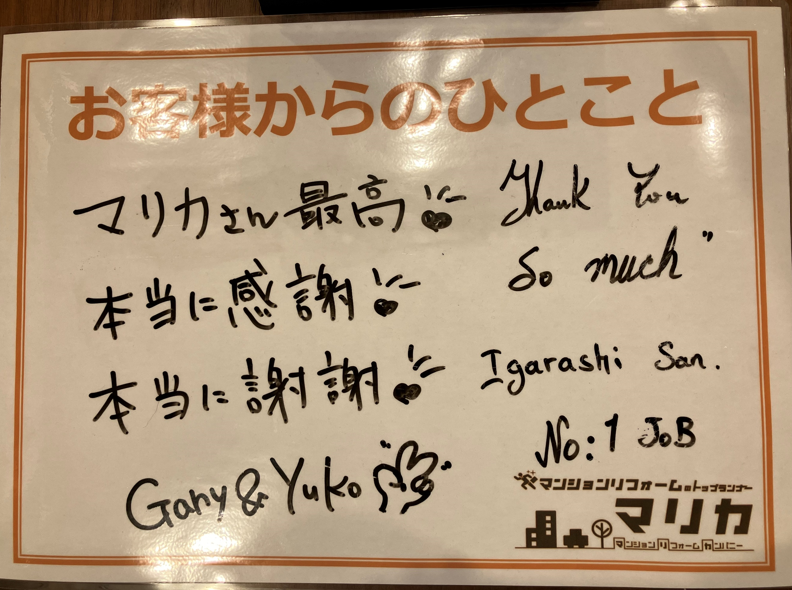 お客様からのひとこと
マリカさん最高
本当に感謝
本当に謝謝
Gary & Yuko
Thank You
So much"
Igarashi San.
No:1 JoB
マンションリフォームのトップランナー
マリカ
マンションリフォームカンパニー